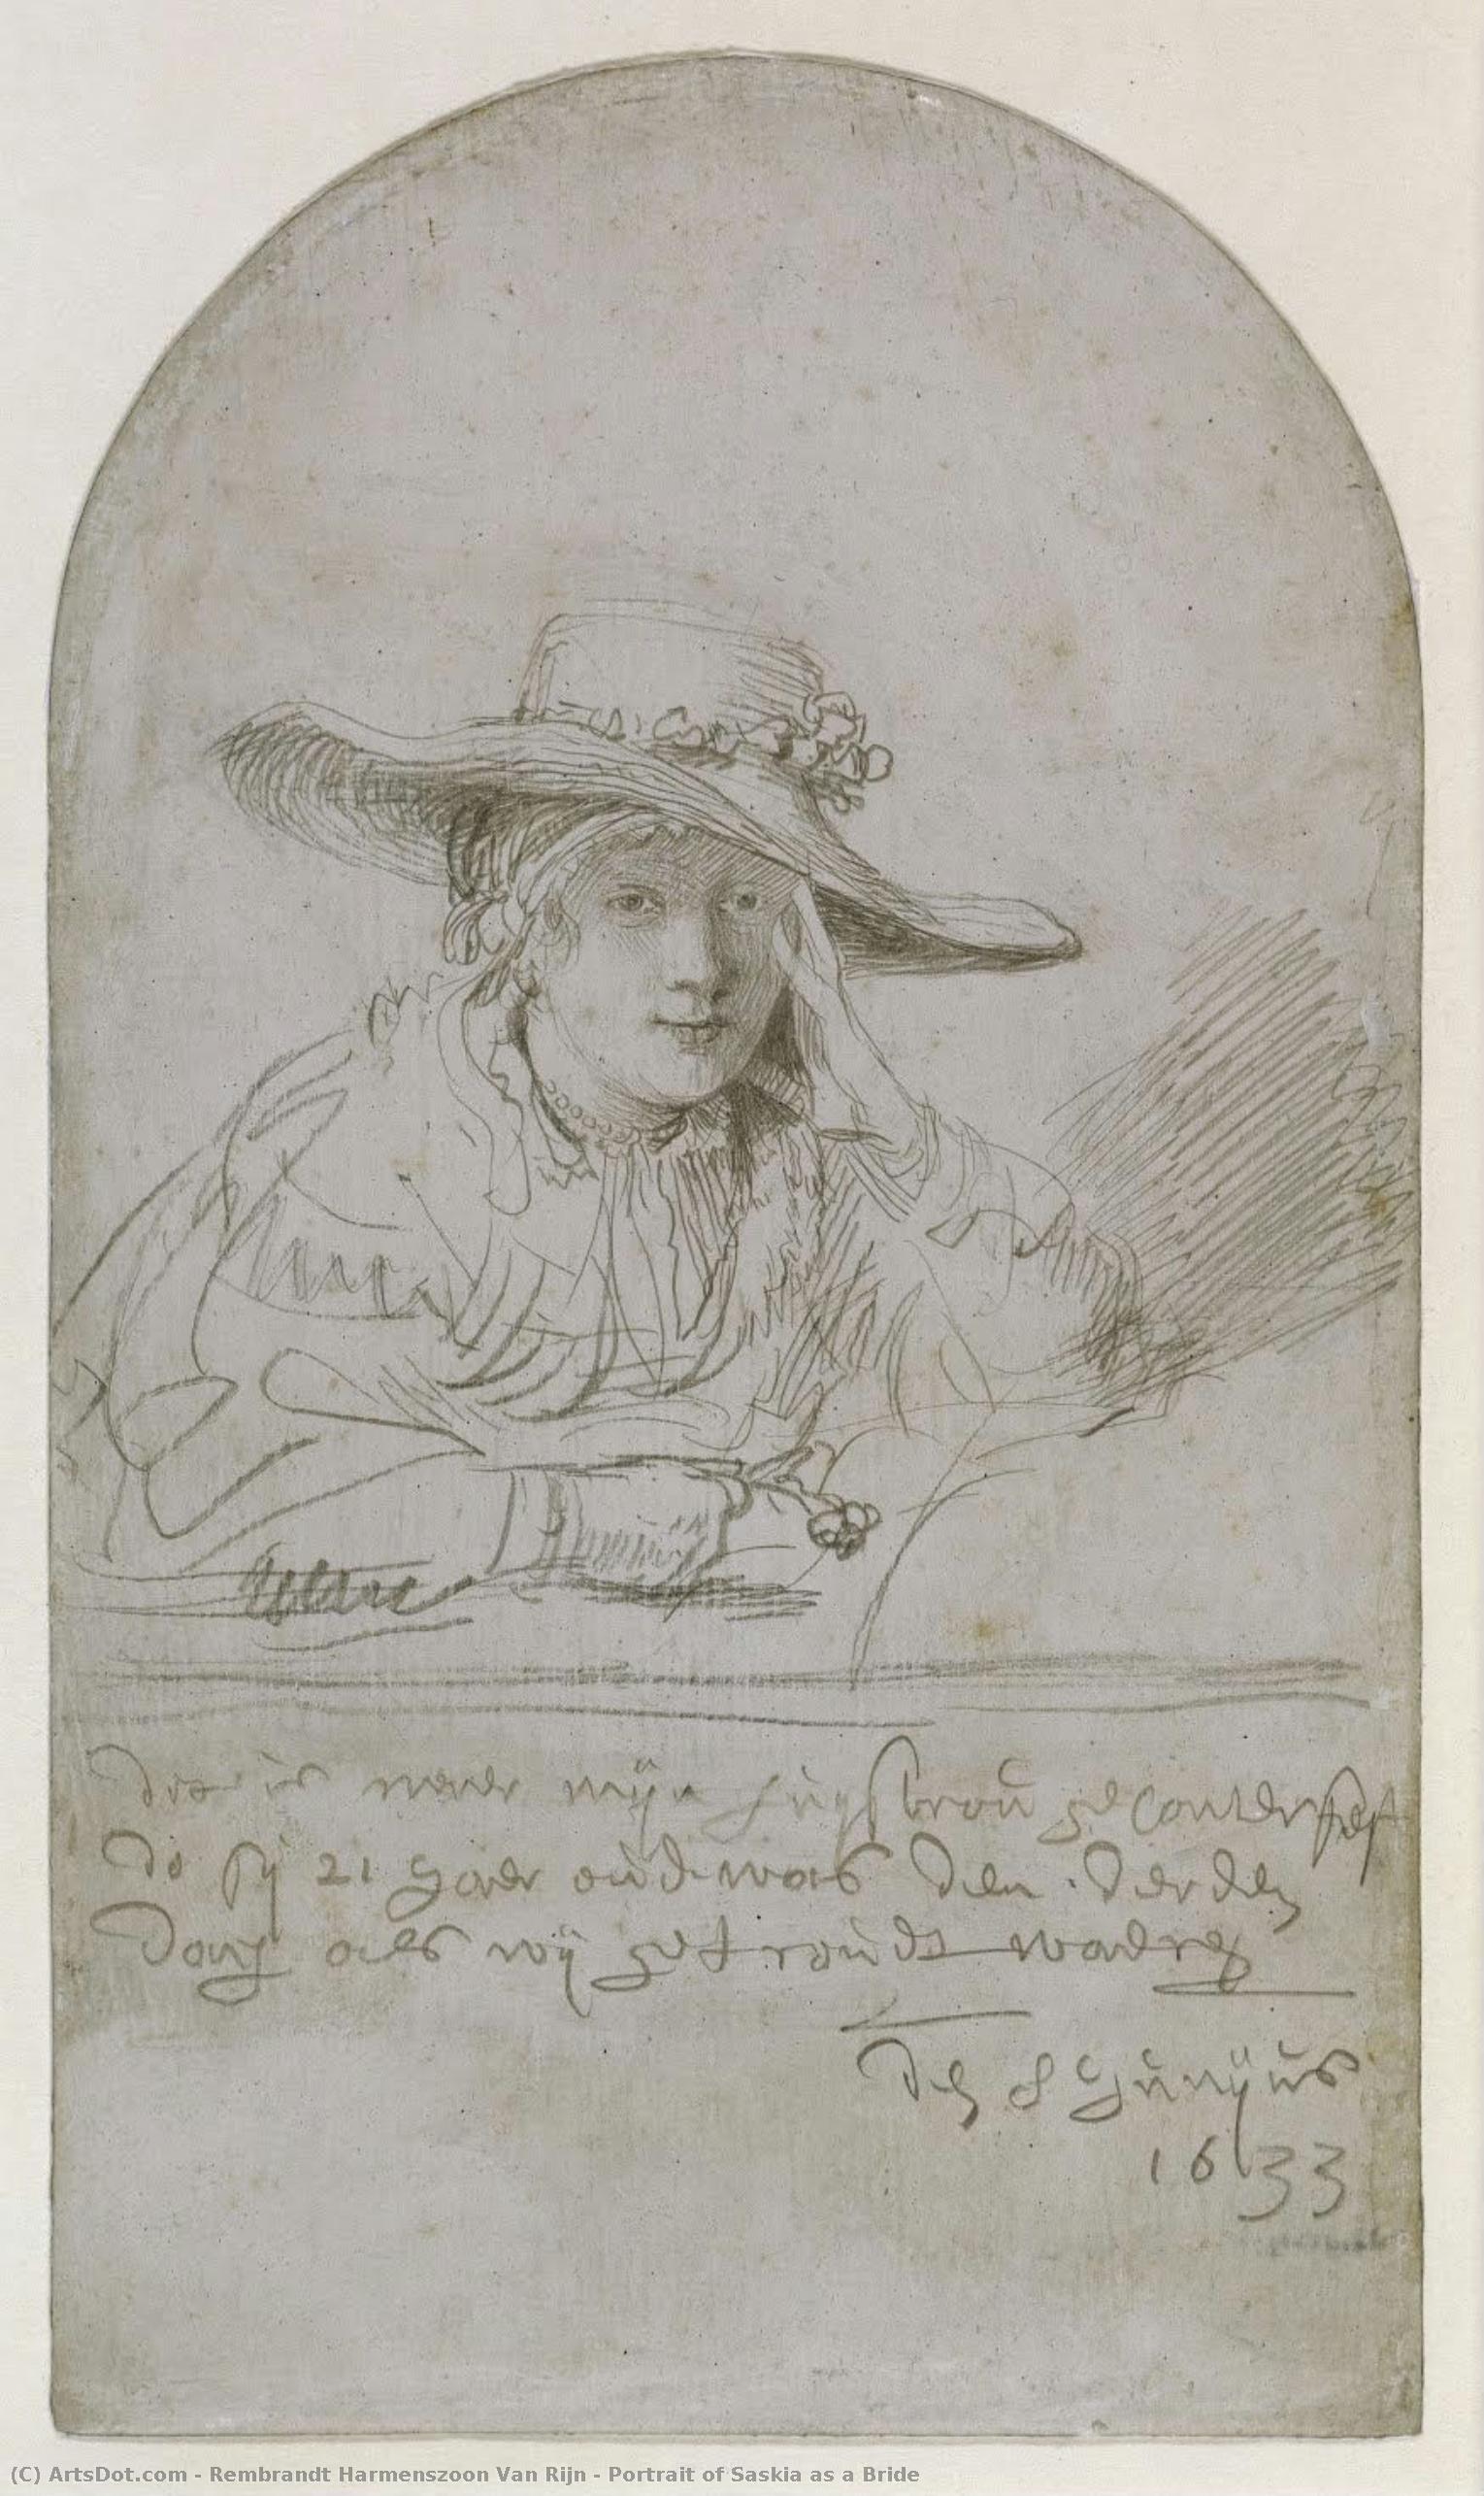 dit is naer mijn huysvrou geconterfeyt
do sij 21 jaer oud was den derden
dach als wij getroudt waeren
den 8 junijus
1633
(C) ArtsDot.com - Rembrandt Harmenszoon Van Rijn - Portrait of Saskia as a Bride